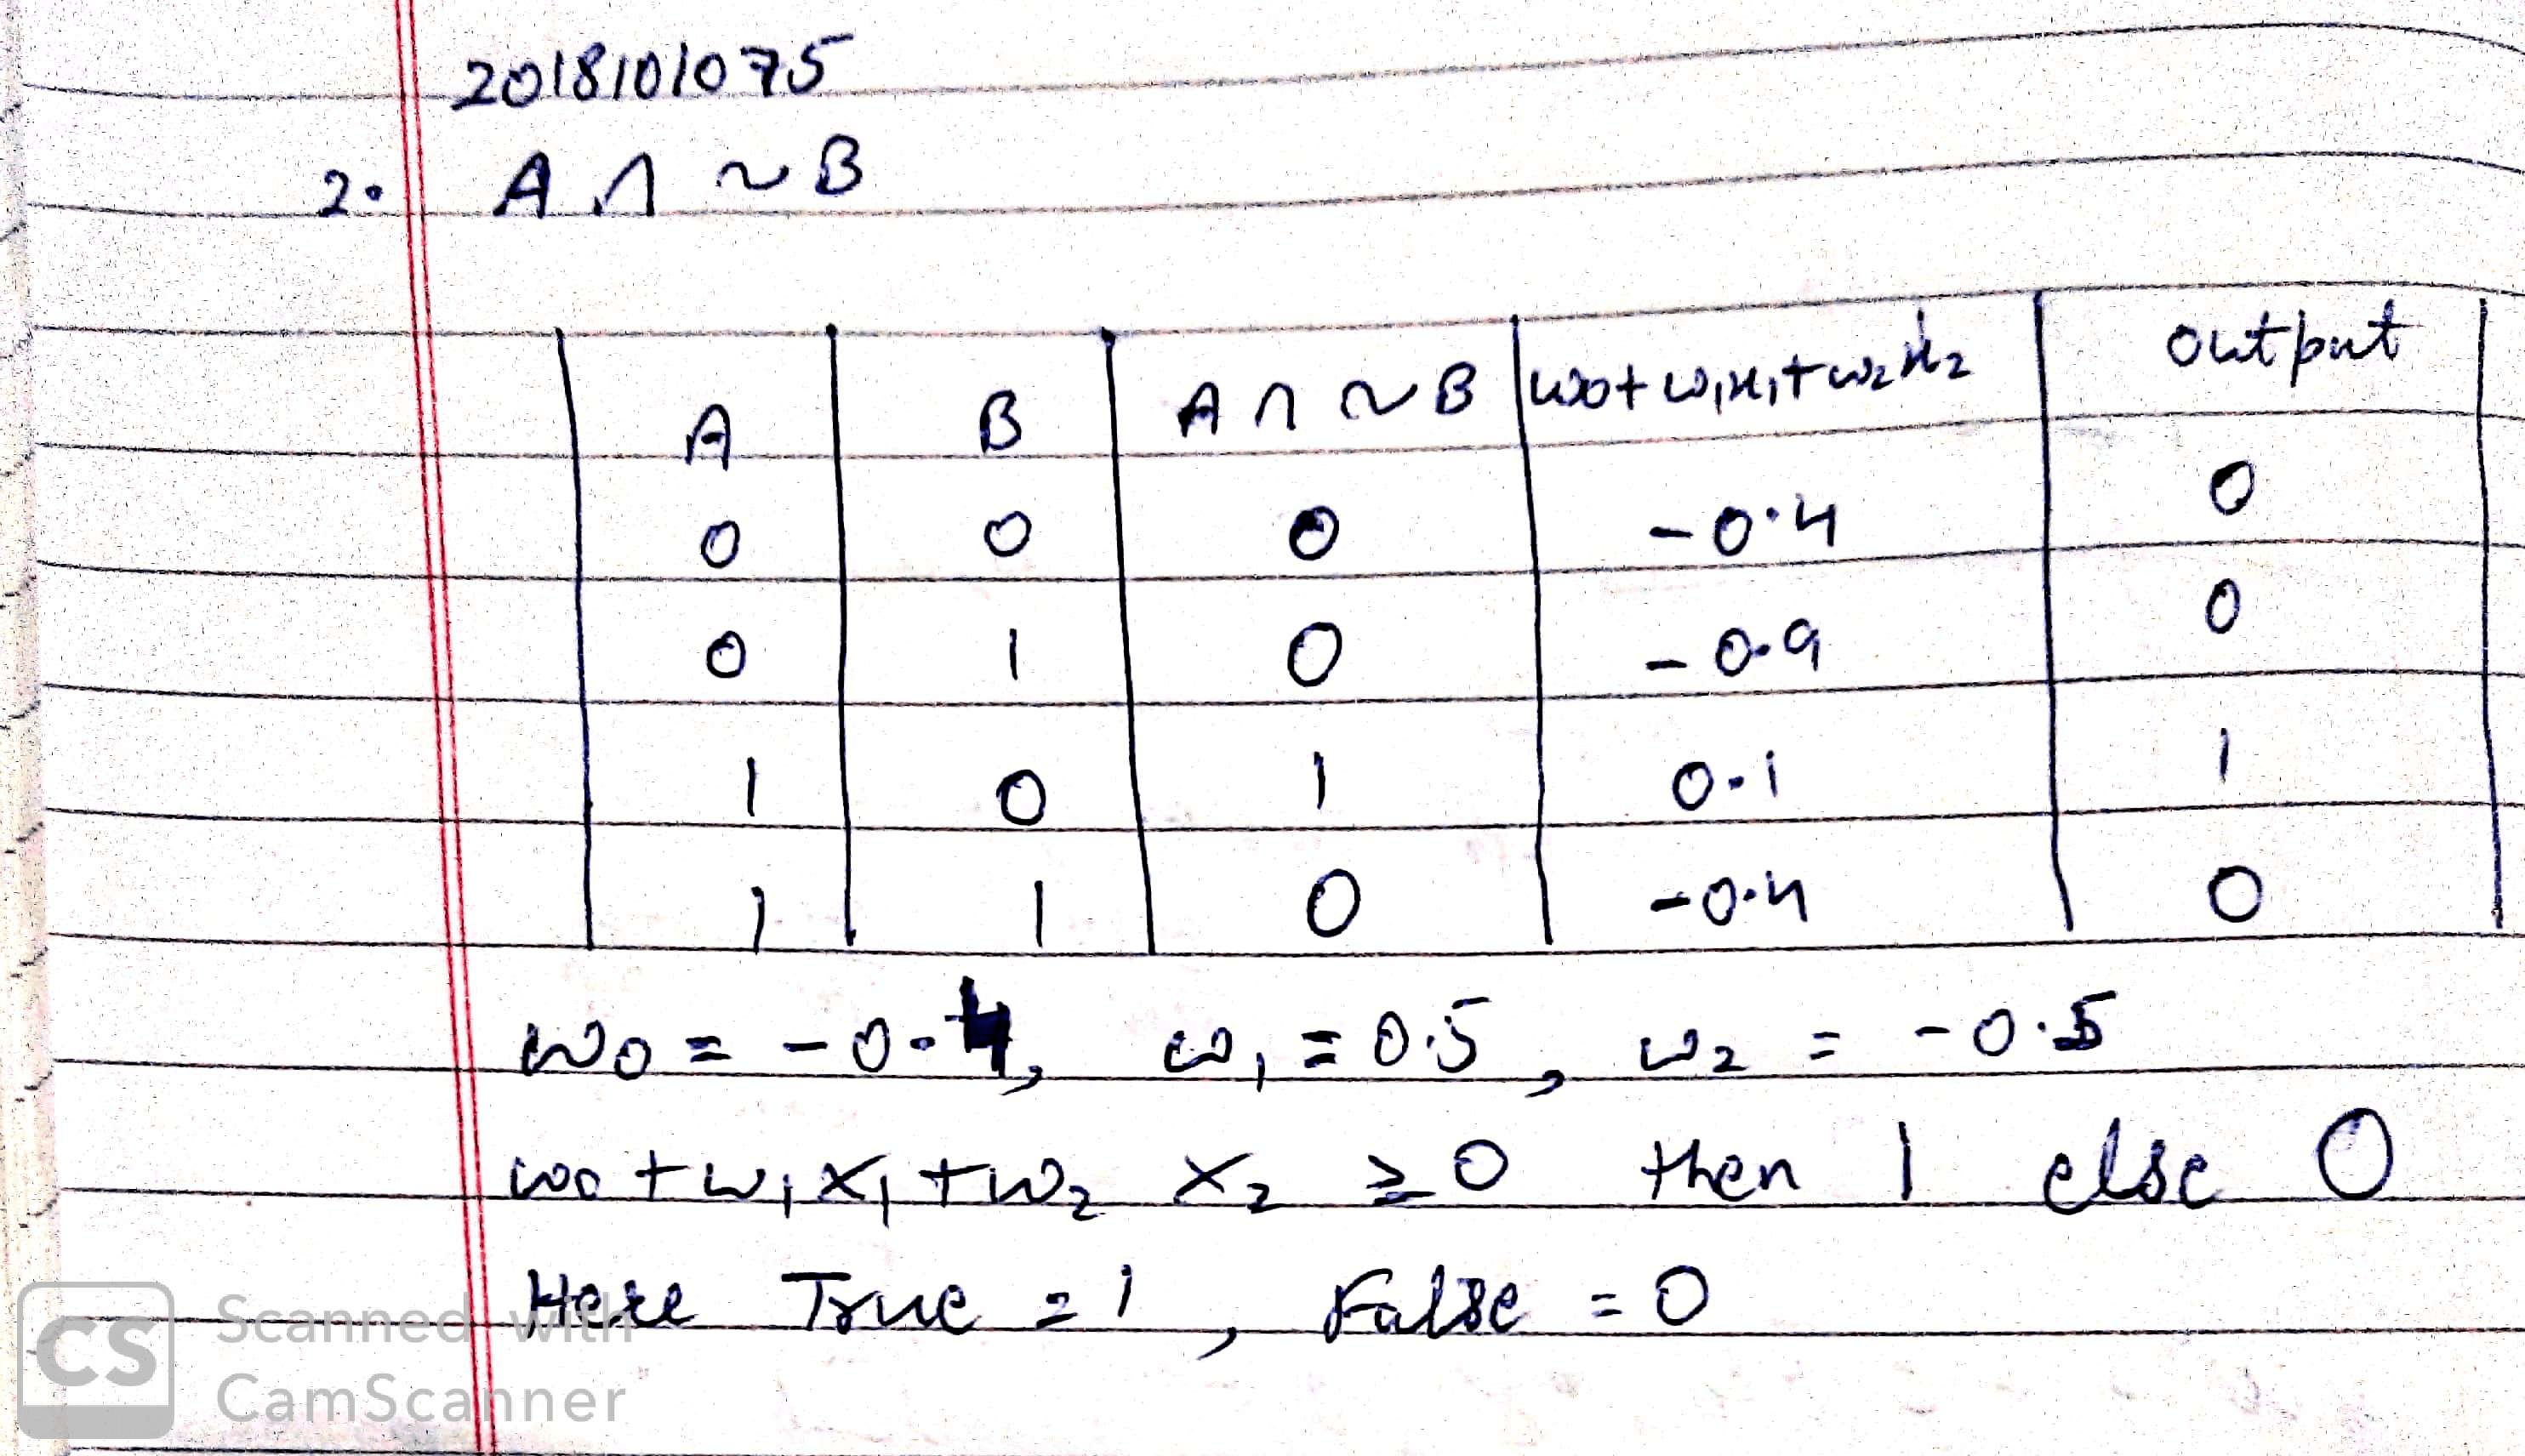 201810107​5
2. A ∩ ~B
A B A ∩ ~B w0+w1x1+w2x2 output
0 0 0 -0.4 0
0 1 0 -0.9 0
1 0 1 0.1 1
1 1 0 -0.4 0
w0 = -0.4, w1 = 0.5, w2 = -0.5
w0 + w1 x1 + w2 x2 ≥ 0 then 1 else 0
Here True = 1, False = 0
CS Scanned with
CamScanner